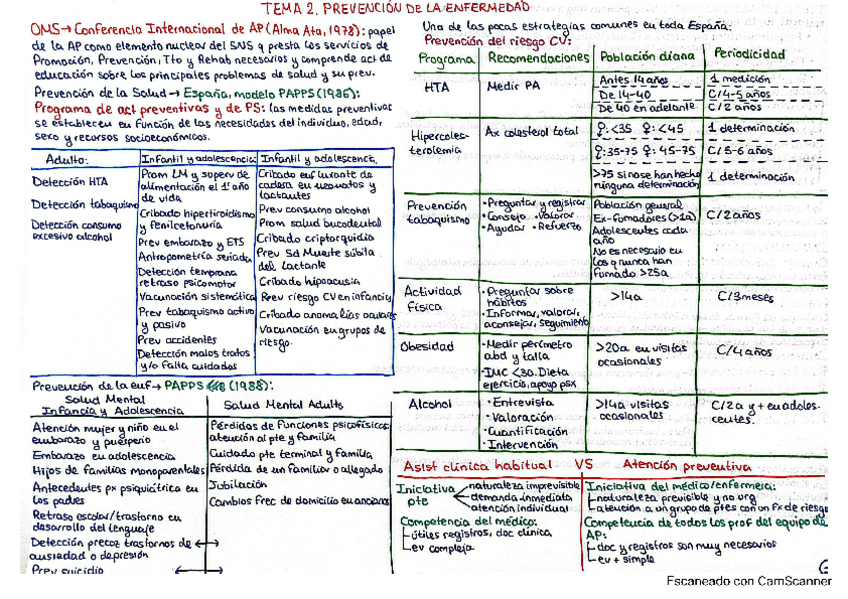 TEMA 2. PREVENCIÓN DE LA ENFERMEDAD
OMS→Conferencia Internacional de AP (Alma Ata, 1978): papel
de la AP como elemento nuclear del SNS q presta los servicios de
Promoción, Prevención, Tto y Rehab necesarios y comprende act de
educación sobre los principales problemas de salud y su prev.
Prevención de la Salud → España, modelo PAPPS (1986):
Programa de act preventivas y de PS: las medidas preventivas
se establecen en función de las necesidades del individuo, edad,
sexo y recursos socioeconómicos.
Adulto:
Detección HTA
Detección tabaquismo
Detección consumo
excesivo alcohol
Infantil y adolescencia:
Prom LM y superv de
alimentación el 1º año
de vida
Cribado hipertiroidismo
y fenilcetonuria
Prev embarazo y ETS
Antropometría seriada
Detección temprana
retraso psicomotor
Vacunación sistemática
Prev tabaquismo activo
y pasivo
Prev accidentes
Detección malos tratos
y/o falta cuidados
Infantil y adolescenc.
Cribado enf luxante de
cadera en neonatos y
lactantes
Prev consumo alcohol
Prom salud bucodental
Cribado criptorquidia
Prev Sd Muerte súbita
del lactante
Cribado hipoacusia
Prev riesgo CV en infancia
Cribado anomalías oculares
Vacunación en grupos de
riesgo.
Prevención de la enf→ PAPPS (1988):
Salud Mental
Infancia y Adolescencia
Atención mujer y niño en el
embarazo y puerperio
Embarazo en adolescencia
Hijos de familias monoparentales
Antecedentes px psiquiátrica en
los padres
Retraso escolar/trastorno en
desarrollo del lenguaje
Detección precoz trastornos de ↔
ansiedad o depresión
Prev suicidio
Salud Mental Adulto
Pérdidas de funciones psicofísicas:
atención al pte y familia
Cuidado pte terminal y familia
Pérdida de un familiar o allegado
Jubilación
Cambios frec de domicilio en ancianos
Una de las pocas estrategias comunes en toda España:
Prevención del riesgo CV:
Programa Recomendaciones Población diana Periodicidad
HTA Medir PA Antes 14 años 1 medición
De 14-40 C/4-5 años
De 40 en adelante C/2 años
Hipercoles-
terolemia
Ax colesterol total
<35 <45 1 determinación
35-75 45-75 C/5-6 años
>75 si no se han hecho
ninguna determinación
1 determinación
Prevención
tabaquismo
• Preguntar y registrar
• Consejo • Valorar
• Ayudar • Refuerzo
Población general
Ex-fumadores (>1a)
Adolescentes cada
año
No es necesario en
los q nunca han
fumado >25a
C/2 años
Actividad
física
• Preguntar sobre
hábitos
• Informar, valorar,
aconsejar, seguimiento
>14a
C/3 meses
Obesidad
• Medir perímetro
abd y talla
• IMC <30. Dieta
ejercicio, apoyo psx
>20a en visitas
ocasionales
C/4 años
Alcohol
• Entrevista
• Valoración
• Cuantificación
• Intervención
>14a visitas
ocasionales
C/2a y + en adoles-
centes.
Asist clínica habitual VS Atención preventiva
Iniciativa
pte
naturaleza imprevisible
demanda inmediata
atención individual
Competencia del médico:
útiles registros, doc clínica
ev compleja
Iniciativa del médico/enfermera:
naturaleza previsible y no urg
atención a un grupo de ptes con un Fx de riesgo
Competencia de todos los prof del equipo de
AP:
doc y registros son muy necesarios
ev + simple
Escaneado con CamScanner